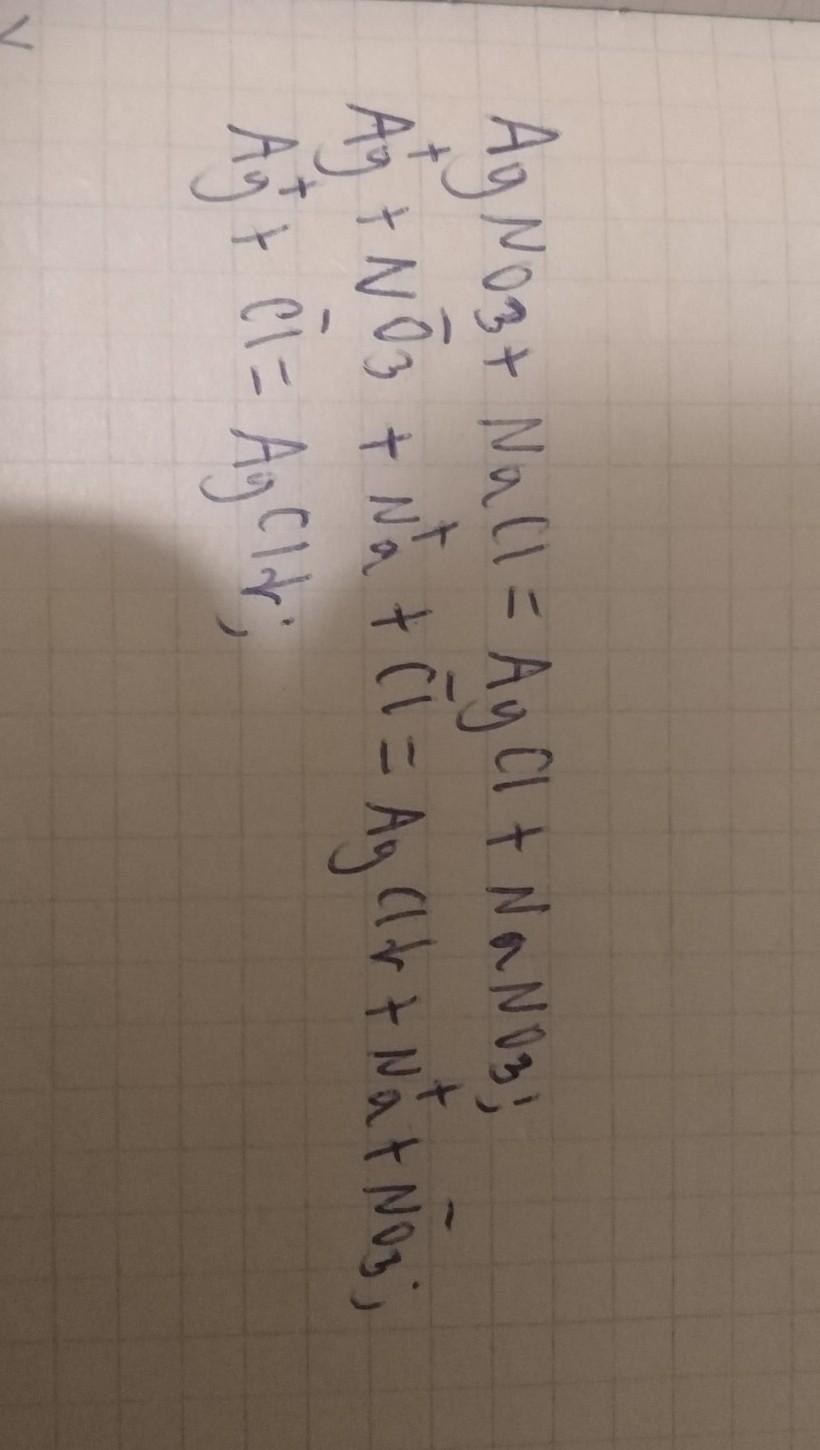 AgNO3 + NaCl = AgCl + NaNO3;
Ag⁺ + NO3⁻ + Na⁺ + Cl⁻ = AgCl↓ + Na⁺ + NO3⁻;
Ag⁺ + Cl⁻ = AgCl↓;